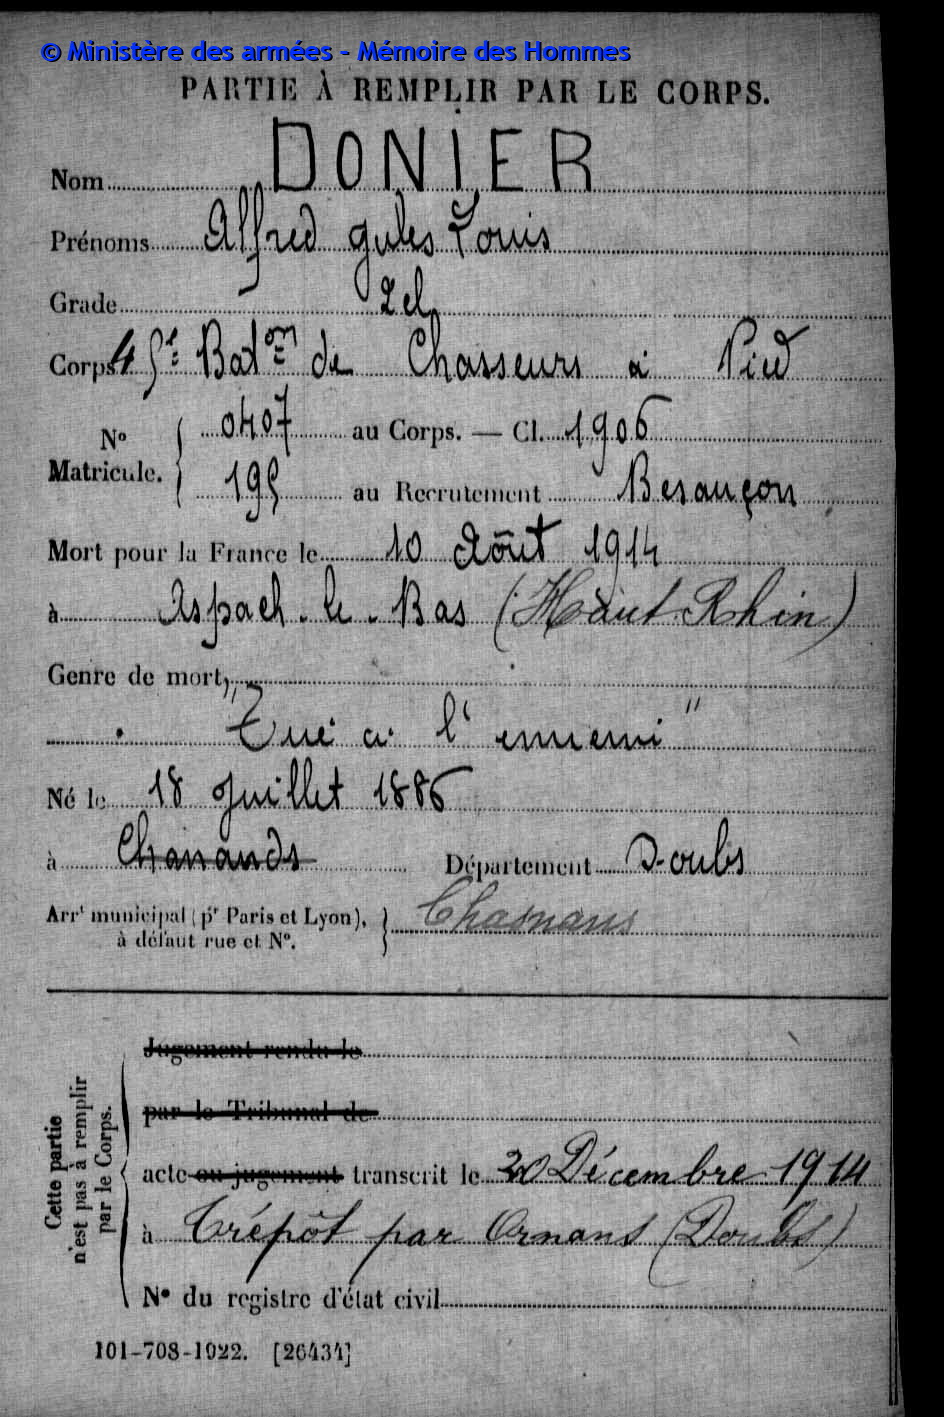 © Ministère des armées - Mémoire des Hommes
PARTIE À REMPLIR PAR LE CORPS.
Nom DONIER
Prénoms Alfred Jules Louis
Grade 2 cl
Corps 45e Baton de Chasseurs à Pied
No Matricule. { 0407 au Corps. — Cl. 1906
195 au Recrutement Besançon
Mort pour la France le 10 Aôut 1914
à Aspach-le-Bas (Haut-Rhin)
Genre de mort,
"Tué à l'ennemi"
Né le 18 Juillet 1886
à Chanands Département Doubs
Arrt municipal (pr Paris et Lyon), à défaut rue et No. } Chasnans
Cette partie n'est pas à remplir par le Corps.
Jugement rendu le
par le Tribunal de
acte ou jugement transcrit le 20 Décembre 1914
à Trépôt par Ornans (Doubs)
No du registre d'état civil
101-708-1922. [26434]